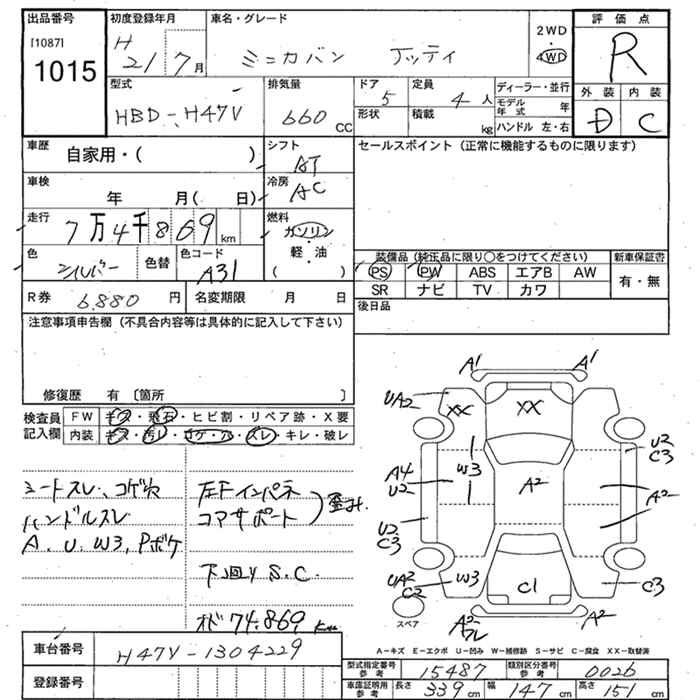 出品番号 初度登録年月 車名・グレード 評価点
[1087]
1015
H
21 7月 ミニカバン Jッティ 2WD
・
4WD
R
型式 排気量 ドア 定員 ディーラー・並行 外装 内装
HBD-H47V 660CC 5 4人 モデル年式 年
形状 積載 kg ハンドル 左・右
D C
車歴 自家用・( ) シフト セールスポイント (正常に機能するものに限ります)
AT
車検 年 月( 日) 冷房
AC
走行 7万4千869km 燃料 ガソリン
・
軽・油
( )
色 シルバー 色替 色コード A31
装備品 (純正品に限り○をつけてください) 新車保証書
PS PW ABS エアB AW 有・無
SR ナビ TV カワ
R券 6,880円 名変期限 月 日 後日品
注意事項申告欄 (不具合内容等は具体的に記入して下さい)
修復歴 有 〔箇所 〕
検査員記入欄 FW キズ・飛石・ヒビ割・リペア跡・X要
内装 キズ・汚レ・コゲ・穴・スレ・キレ・破レ
シートスレ、コゲ穴
ハンドルスレ
A、U、W3、Pボケ
左Fインパネ
コアサポート
下廻りS.C.
オド74,869Km
A1 A1
UA2 XX XX
U2
C3
W3
A4
U2
A2 A2
U2
C3
UA2
C2
W3 C1 C3
スペア
A2
フレ
A2
A-キズ E-エクボ U-凹み W-補修跡 S-サビ C-腐食 XX-取替済
車台番号 H47V-1304229
登録番号
型式指定番号 参考 15487 類別区分番号 参考 0026
車庫証明用 参考 長さ 339cm 幅 147cm 高さ 151cm